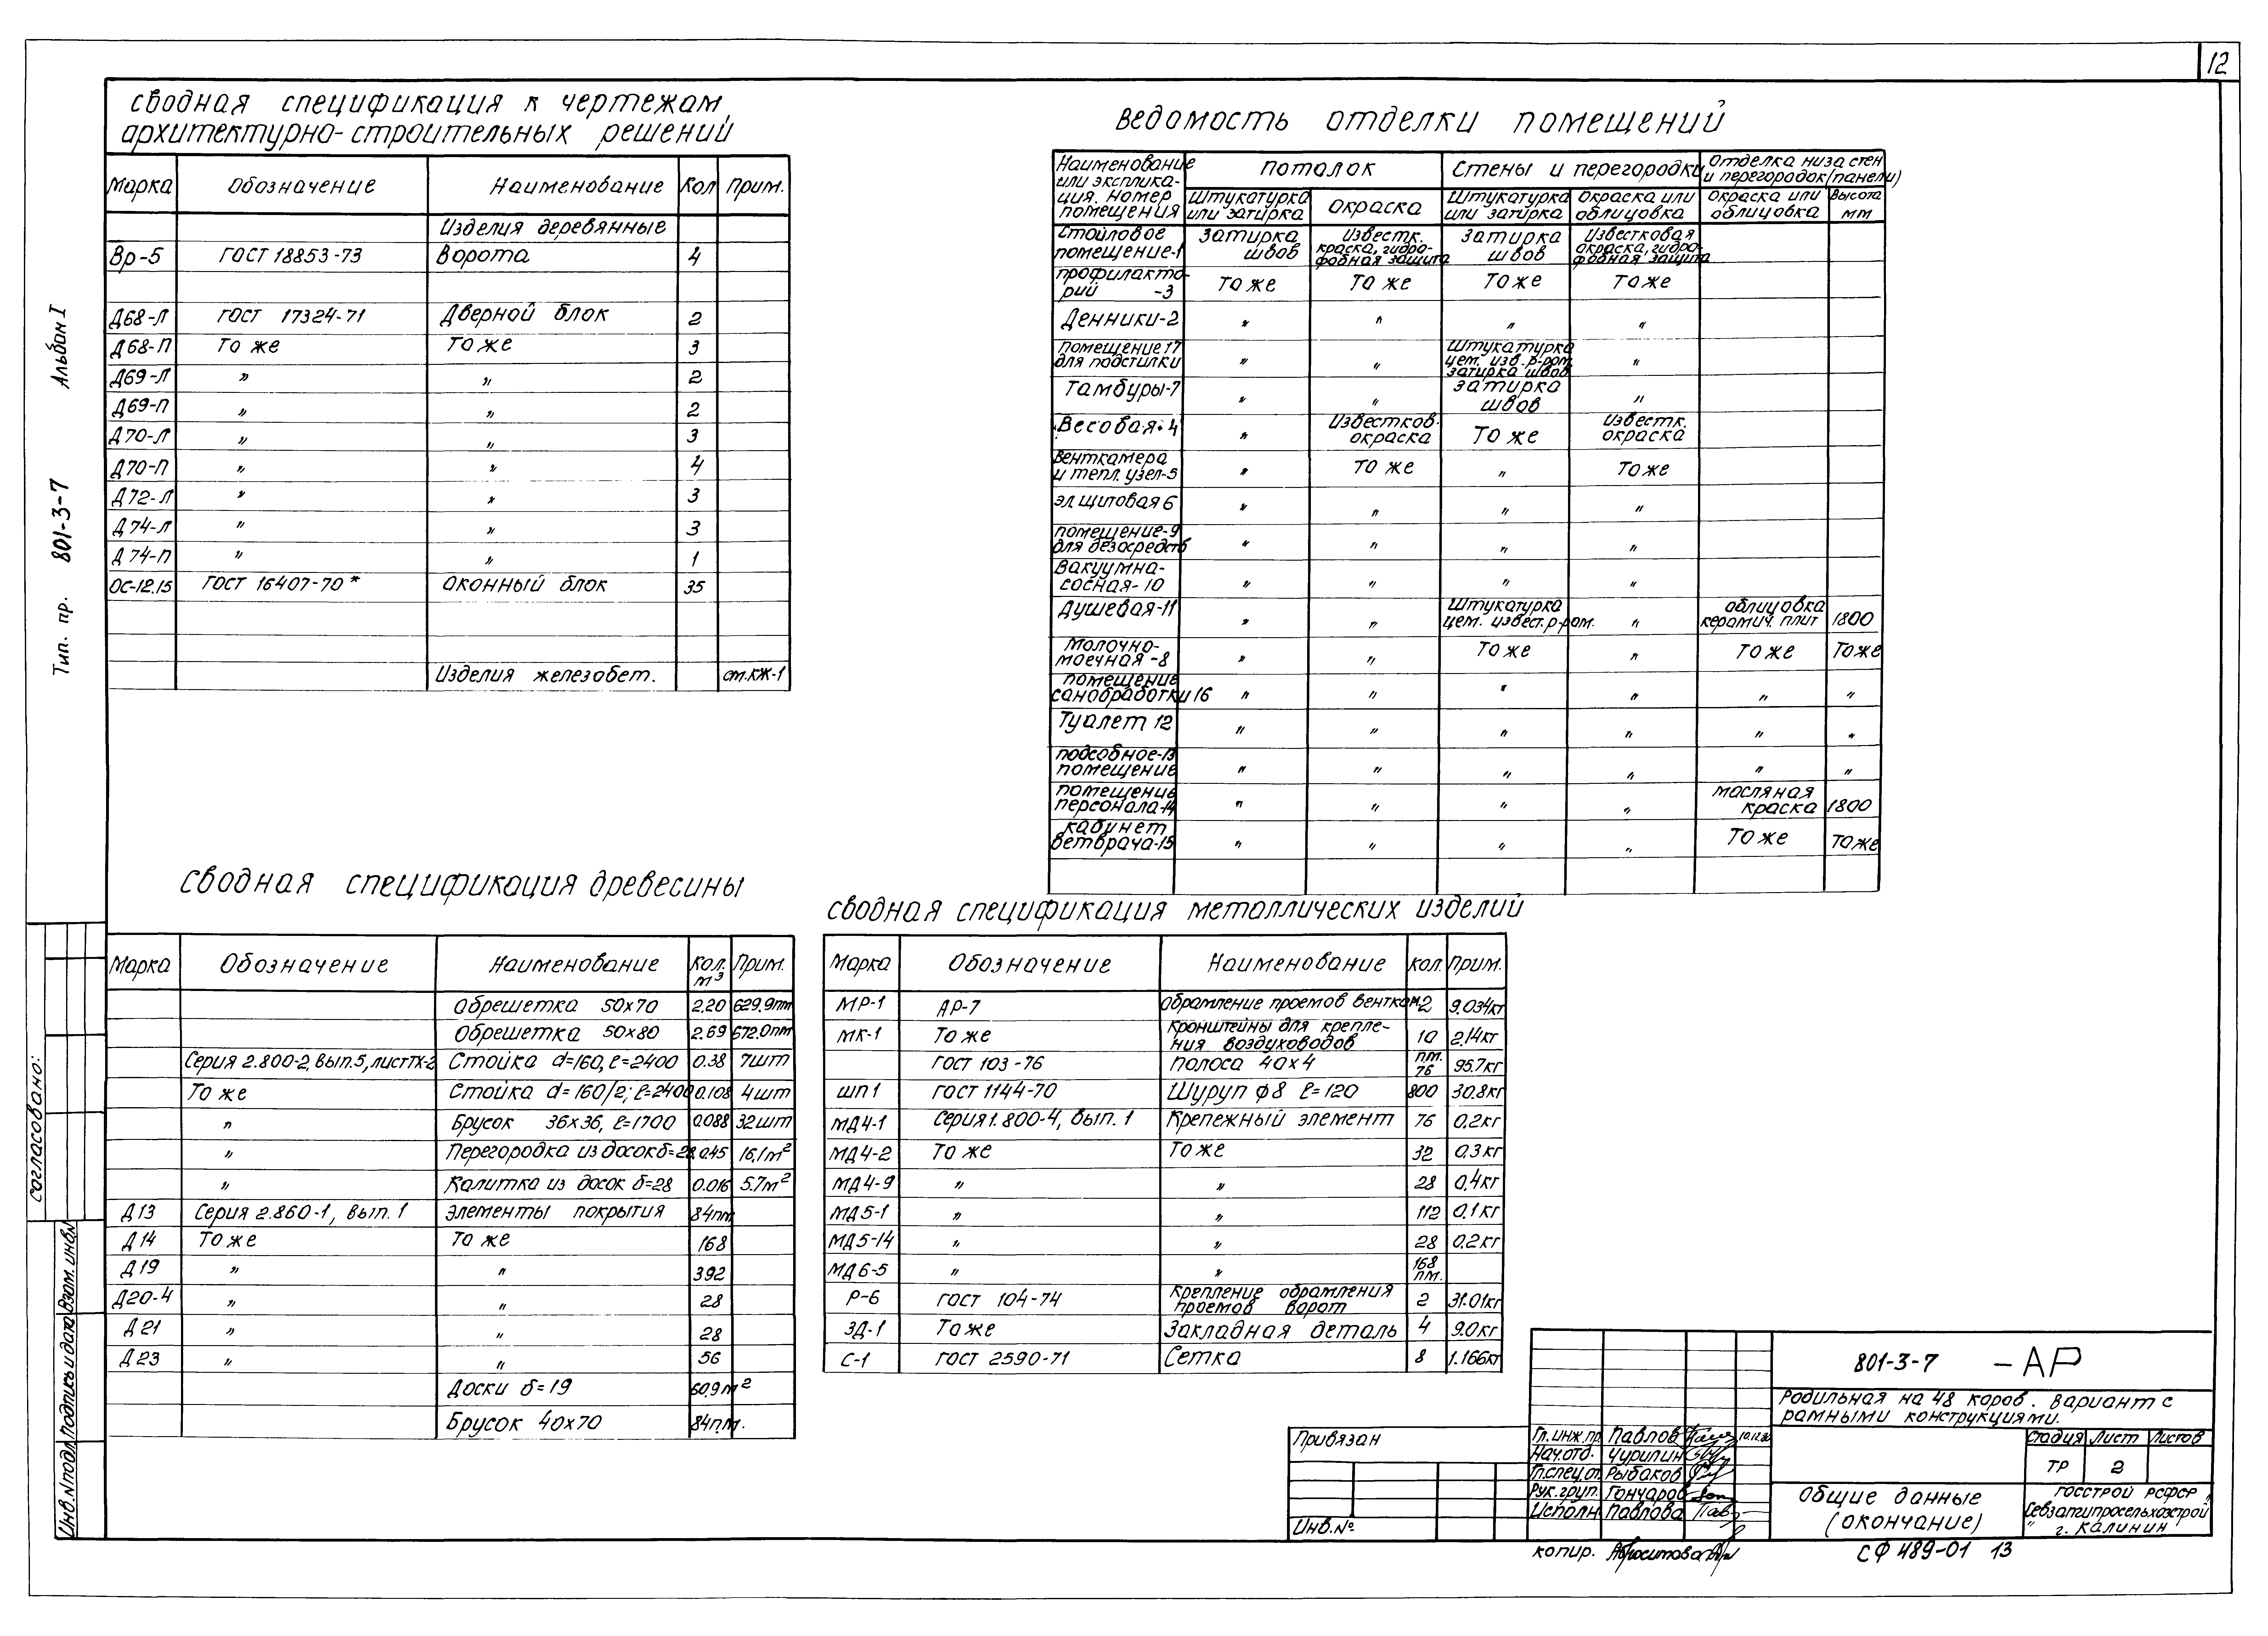 12
сводная спецификация к чертежам
архитектурно-строительных решений
Марка Обозначение Наименование Кол Прим.
Изделия деревянные
Вр-5 ГОСТ 18853-73 Ворота 4
Д68-Л ГОСТ 17324-71 Дверной блок 2
Д68-П То же То же 3
Д69-Л " " 2
Д69-П " " 2
Д70-Л " " 3
Д70-П " " 4
Д72-Л " " 3
Д74-Л " " 3
Д74-П " " 1
ОС-12.15 ГОСТ 16407-70* Оконный блок 35
Изделия железобет. см.КЖ-1
Ведомость отделки помещений
Наименование или экспликация. Номер помещения Потолок Стены и перегородки Отделка низа стен и перегородок (панели)
Штукатурка или затирка Окраска Штукатурка или затирка Окраска или облицовка Окраска или облицовка Высота мм
Стойловое помещение-1 Затирка швов Известк. краска, гидрофобная защита Затирка швов Известковая окраска, гидрофобная защита
Профилакторий -3 То же То же То же То же
Денники-2 " " " "
Помещение 17 для подстилки " " Штукатурка цем. изв. р-ром, затирка швов "
Тамбуры-7 " " затирка швов "
Весовая-4 " Известков. окраска То же Известк. окраска
Венткамера и тепл. узел-5 " То же " То же
эл щитовая 6 " " " "
помещение-9 для дезосредств " " " "
Вакуумнасосная-10 " " " "
Душевая-11 " " Штукатурка цем. извест. р-ром. " облицовка керамич. плит 1800
Молочно-моечная-8 " " То же " То же То же
помещение санобработки 16 " " " " " "
Туалет 12 " " " " " "
подсобное-13 помещение " " " " " "
помещение персонала-14 " " " " масляная краска 1800
кабинет ветврача-15 " " " " То же То же
Сводная спецификация древесины
Марка Обозначение Наименование Кол. м³ Прим.
Обрешетка 50х70 2.20 629.9пм
Обрешетка 50х80 2.69 672.0пм
Серия 2.800-2, вып.5, лист ТХ-2 Стойка d=160, ℓ=2400 0.38 7шт
То же Стойка d=160/2; ℓ=2400 0.108 4шт
" Брусок 36х36, ℓ=1700 0.088 32шт
" Перегородка из досок δ=28 0.45 16.1м²
" Калитка из досок δ=28 0.016 5.7м²
Д13 Серия 2.860-1, вып. 1 Элементы покрытия 84пм
Д14 То же То же 168
Д19 " " 392
Д20-4 " " 28
Д21 " " 28
Д23 " " 56
Доски δ=19 60.9м²
Брусок 40х70 84п.м.
Сводная спецификация металлических изделий
Марка Обозначение Наименование Кол. Прим.
МР-1 АР-7 Обрамление проемов венткам. 2 9.034кг
МК-1 То же Кронштейны для крепления воздуховодов 10 2.14кг
ГОСТ 103-76 Полоса 40х4 пм. 76 95.7кг
ШП1 ГОСТ 1144-70 Шуруп ф8 ℓ=120 800 30.8кг
МД4-1 Серия 1.800-4, вып. 1 Крепежный элемент 76 0.2кг
МД4-2 То же То же 32 0.3кг
МД4-9 " " 28 0.4кг
МД5-1 " " 112 0.1кг
МД5-14 " " 28 0.2кг
МД6-5 " " 168 пм.
Р-6 ГОСТ 104-74 Крепление обрамления проемов ворот 2 31.01кг
ЗД-1 То же Закладная деталь 4 9.0кг
С-1 ГОСТ 2590-71 Сетка 8 1.166кг
Привязан
Инв.№
Гл.инж.пр. Павлов 10.12.80
Нач.отд. Чурилин
Гл.спец.от. Рыбаков
Рук.груп. Гончаров
Исполн. Павлова
801-3-7 -АР
Родильная на 48 коров. Вариант с
рамными конструкциями.
Стадия Лист Листов
ТР 2
Общие данные
(окончание)
ГОССТРОЙ РСФСР
"Севзапгипросельхозстрой"
г. Калинин
копир.
СФ 489-01 13
Тип. пр. 801-3-7 Альбом I
Согласовано:
Инв.№подл. Подпись и дата Взам. инв.№